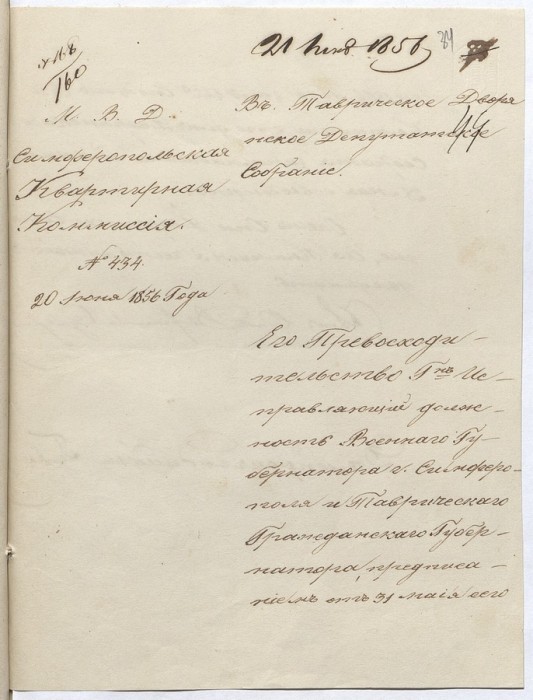 21 Іюня 1856
34
160
М. В. Д.
Симферопольская
Квартирная
Коммиссія.
№ 434.
20 Июня 1856 Года
Въ Таврическое Дворя
нское Депутатское
Собраніе.
44
Его Превосходи-
тельство Г-нъ Ис-
правляющій долж-
ность Военнаго Гу-
бернатора г. Симферо-
поля и Таврическаго
Гражданскаго Губер-
натора, предписа-
ніемъ отъ 31 маія сего